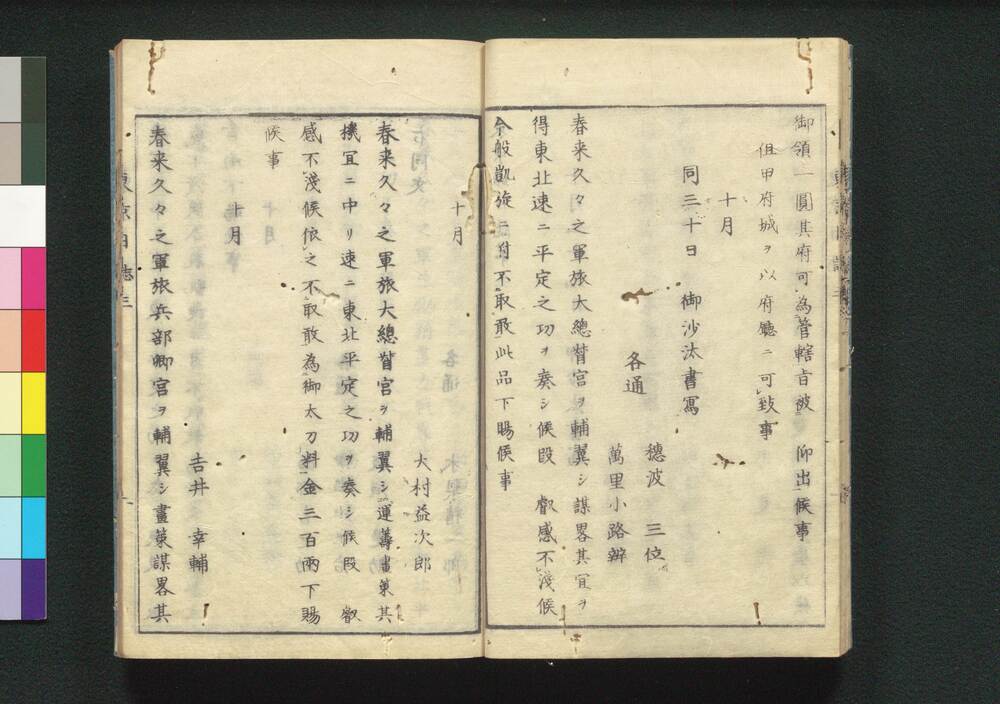 御領一圓其府可為管轄旨被 仰出候事
但甲府城ヲ以府廳ニ可致事
十月
同三十日 御沙汰書寫
穗波 三位
各通
萬里小路辨
春来久々之軍旅大總督宮ヲ輔翼シ謀畧其宜ヲ
得東北速ニ平定之功ヲ奏シ候段 叡感不淺候
今般凱旋ニ付不取敢此品下賜候事
十月
大村益次郎
春来久々之軍旅大總督宮ヲ輔翼シ運籌畫策其
機宜ニ中リ速ニ東北平定之功ヲ奏シ候段 叡
感不淺候依之不取敢為御太刀料金三百兩下賜
候事
十月
吉井 幸輔
春来久々之軍旅兵部卿宮ヲ輔翼シ畫策謀畧其
東京日誌三